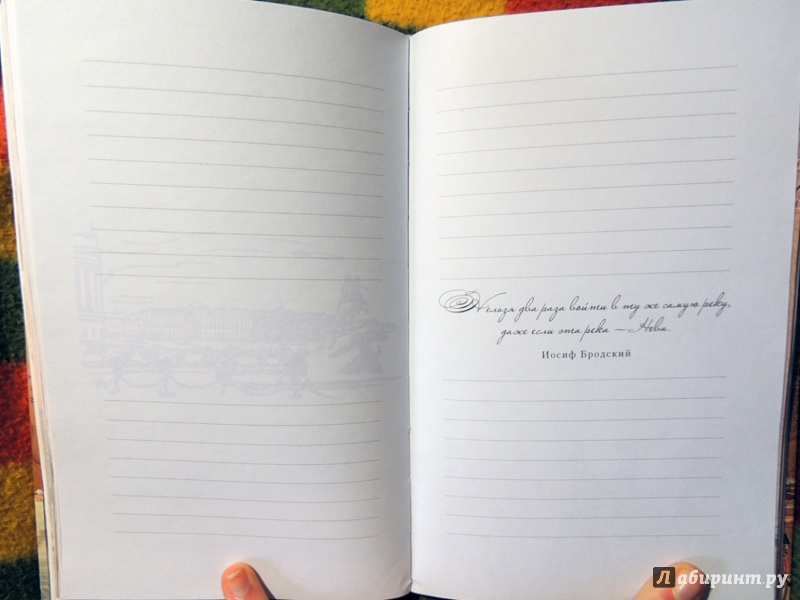 Нельзя два раза войти в ту же самую реку,
даже если эта река — Нева.
Иосиф Бродский
Лабиринт.ру